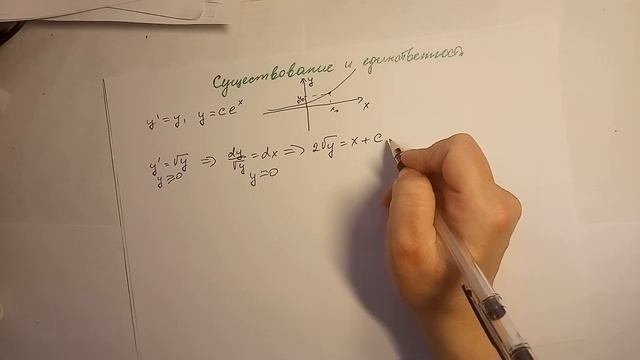 Существование и единственность
y' = y, y = ce^x
y
y₀
x₀
x
y' = √y ⇒ dy/√y = dx ⇒ 2√y = x + c
y ≥ 0 y = 0